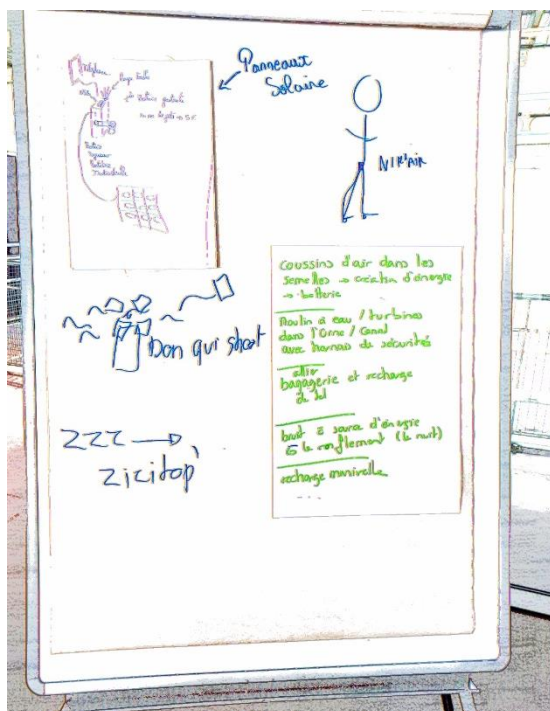 Panneaux
Solaire
NIK'AIR
Don qui shoot
ZZZ
zizitop'
coussins d'air dans les
semelles → création d'énergie
→ batterie
Moulin à eau / turbines
dans l'Orne / Canal
avec harnais de sécurités
allier
bagagerie et recharge
de tel
bruit = source d'énergie
le ronflement (la nuit)
recharge manivelle
...